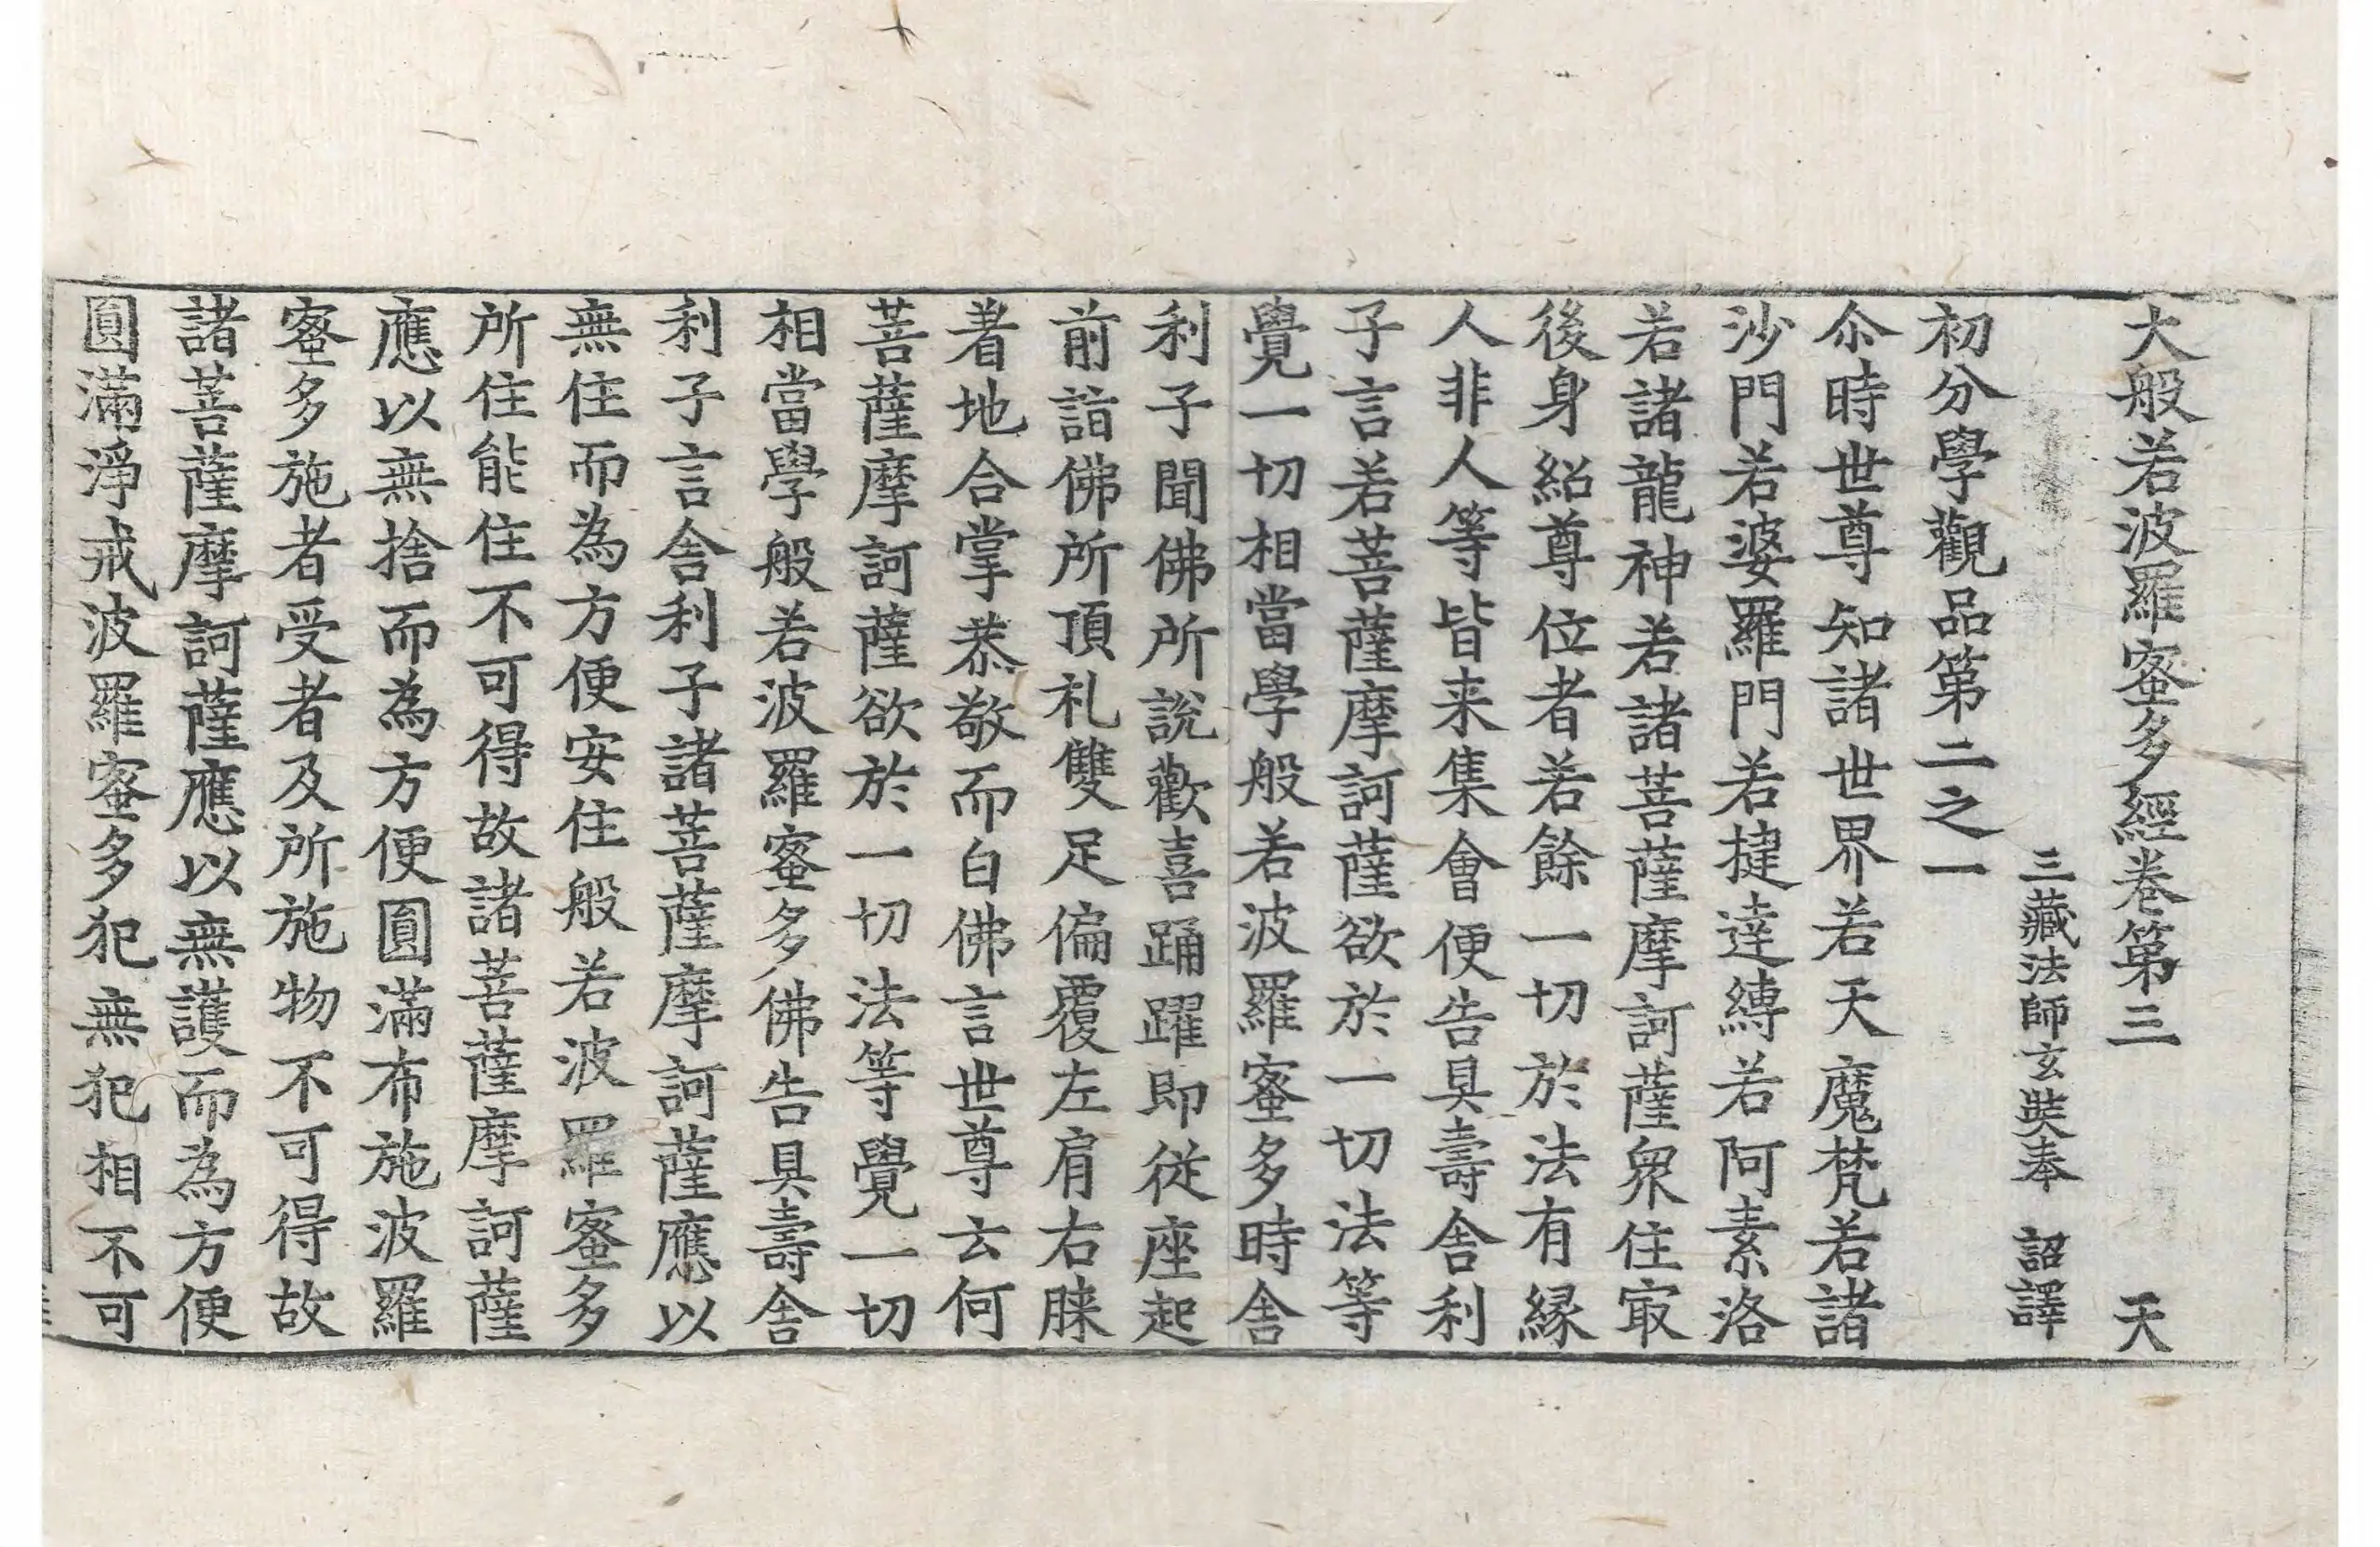 大般若波羅蜜多經卷第三 天
三藏法師玄奘奉 詔譯
初分學觀品第二之一
尒時世尊知諸世界若天魔梵若諸
沙門若婆羅門若揵達縛若阿素洛
若諸龍神若諸菩薩摩訶薩衆住㝡
後身紹尊位者若餘一切於法有緣
人非人等皆来集會便告具壽舎利
子言若菩薩摩訶薩欲於一切法等
覺一切相當學般若波羅蜜多時舎
利子聞佛所說歡喜踊躍即從座起
前詣佛所頂礼雙足偏覆左肩右膝
著地合掌恭敬而白佛言世尊云何
菩薩摩訶薩欲於一切法等覺一切
相當學般若波羅蜜多佛告具壽舎
利子言舎利子諸菩薩摩訶薩應以
無住而為方便安住般若波羅蜜多
所住能住不可得故諸菩薩摩訶薩
應以無捨而為方便圓滿布施波羅
蜜多施者受者及所施物不可得故
諸菩薩摩訶薩應以無護而為方便
圓滿淨戒波羅蜜多犯無犯相不可